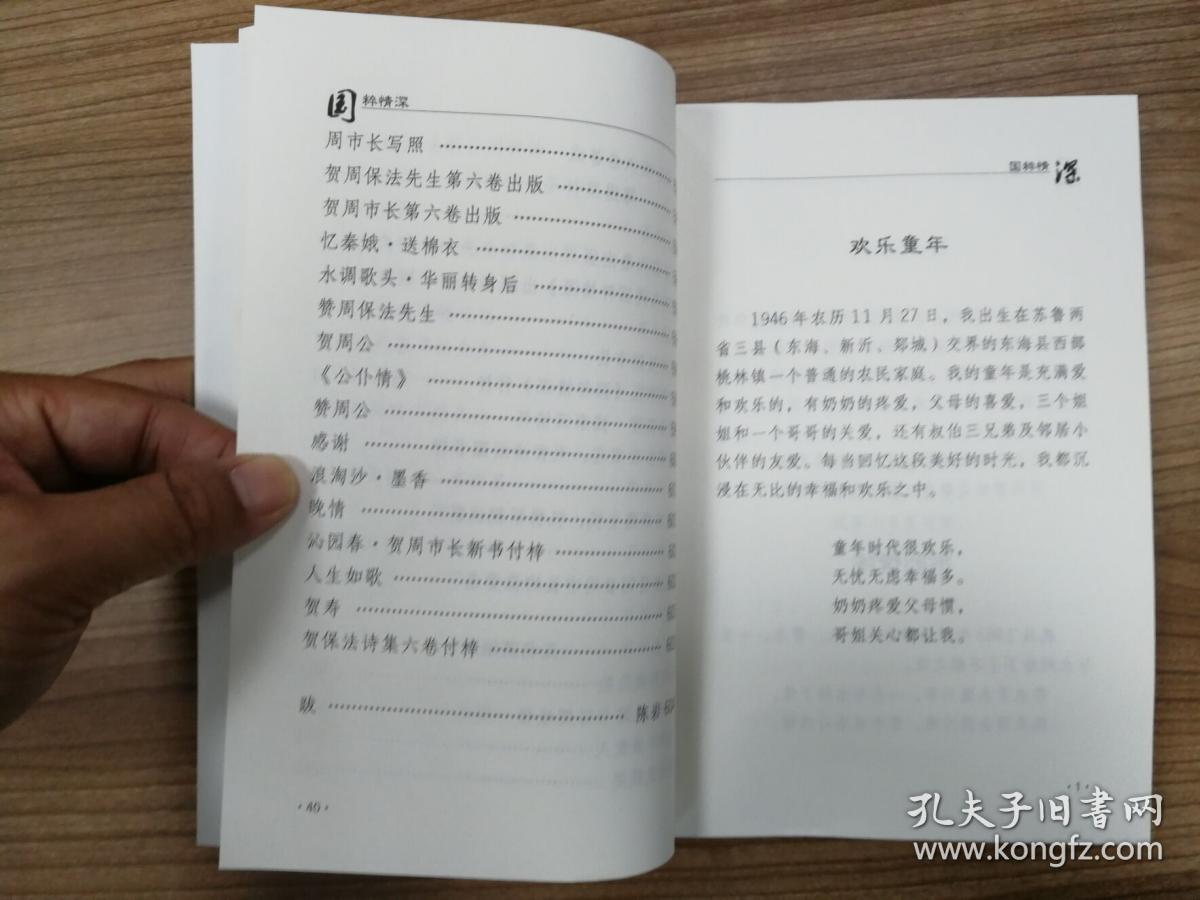 国粹情深
周市长写照
贺周保法先生第六卷出版
贺周市长第六卷出版
忆秦娥·送棉衣
水调歌头·华丽转身后
赞周保法先生
贺周公
《公仆情》
赞周公
感谢
浪淘沙·墨香
晚情
沁园春·贺周市长新书付梓
人生如歌
贺寿
贺保法诗集六卷付梓
跋 陈岩
·40·
国粹情深
欢乐童年
1946年农历11月27日，我出生在苏鲁两
省三县（东海、新沂、郯城）交界的东海县西部
桃林镇一个普通的农民家庭。我的童年是充满爱
和欢乐的，有奶奶的疼爱，父母的喜爱，三个姐
姐和一个哥哥的关爱，还有叔伯三兄弟及邻居小
伙伴的友爱。每当回忆这段美好的时光，我都沉
浸在无比的幸福和欢乐之中。
童年时代很欢乐，
无忧无虑幸福多。
奶奶疼爱父母惯，
哥姐关心都让我。
·1·
孔夫子旧书网
www.kongfz.com